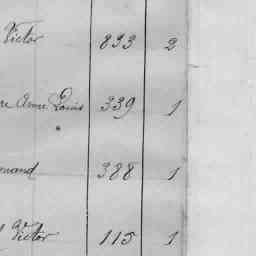 Victor 893 2
re Anne Louis 339 1
mand 388 1
Victor 115 1